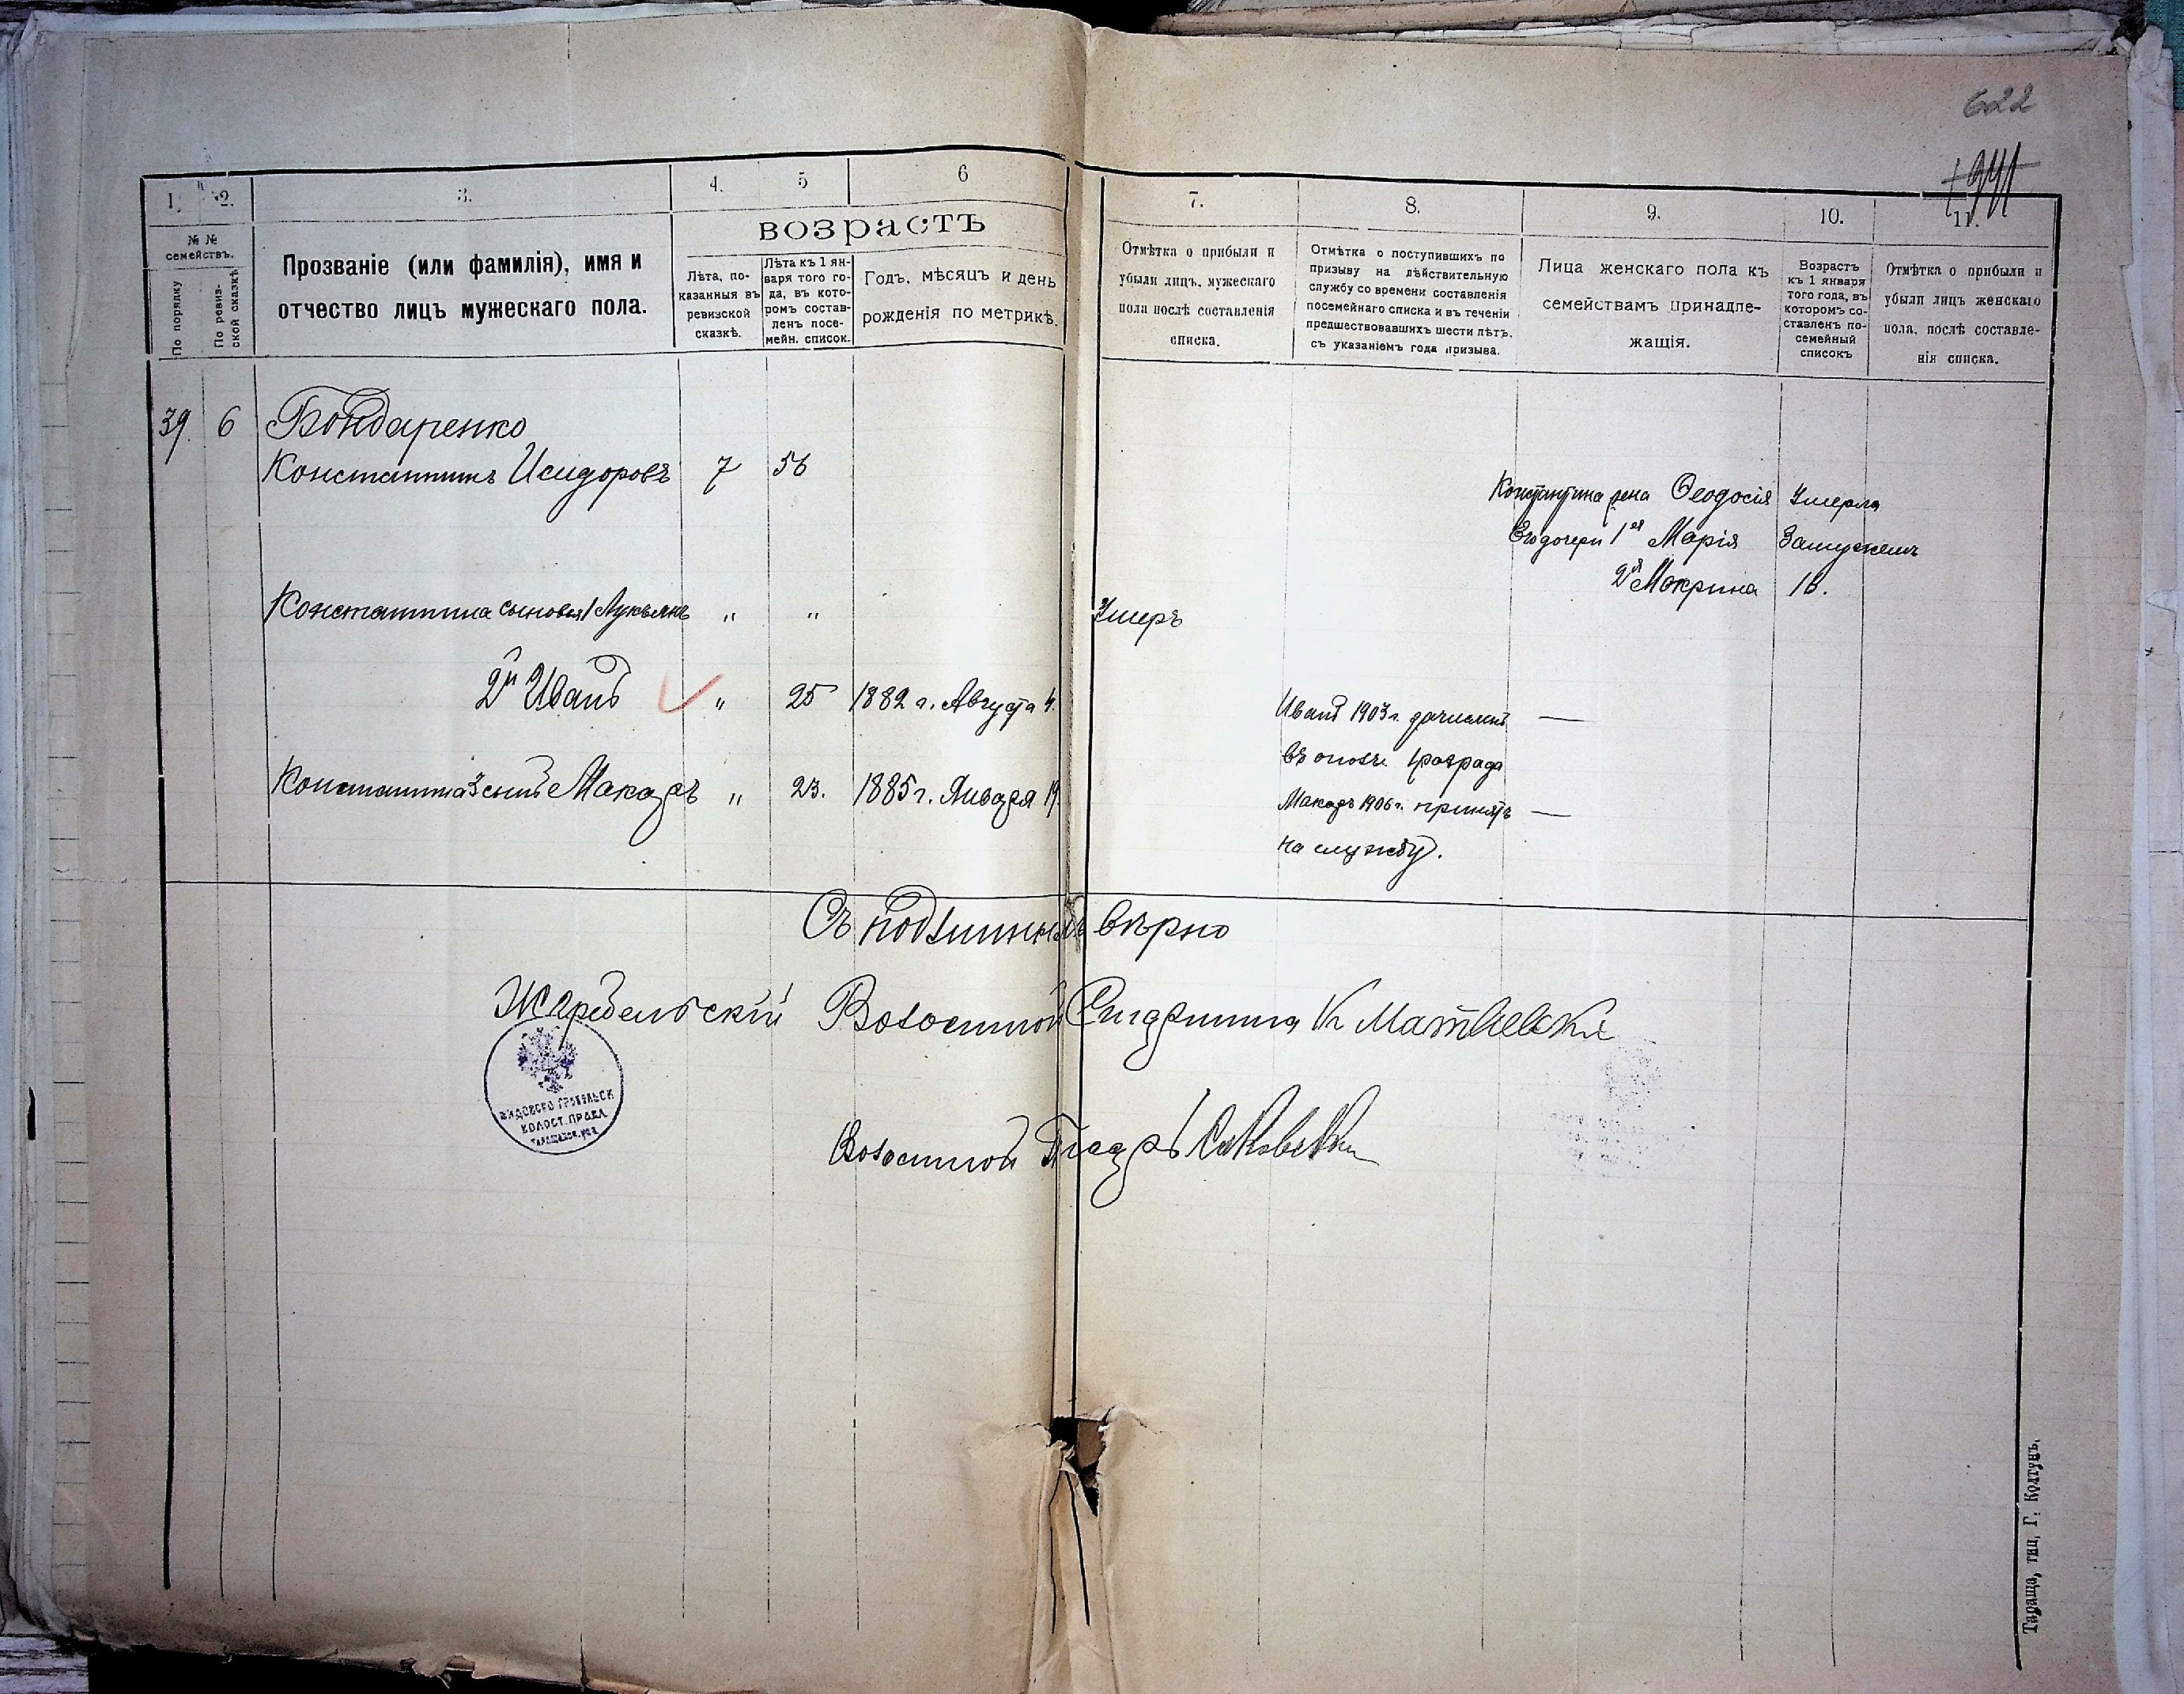 622
1. 2. 3. 4. 5 6 7. 8. 9. 10. 11.
№ №
семействъ.
По порядку
По ревиз-
ской сказкѣ
Прозваніе (или фамилія), имя и
отчество лицъ мужескаго пола.
возрастъ
Лѣта, по-
казанныя въ
ревизской
сказкѣ.
Лѣта къ 1 ян-
варя того го-
да, въ кото-
ромъ состав-
ленъ посе-
мейн. список.
Годъ, мѣсяцъ и день
рожденія по метрикѣ.
Отмѣтка о прибыли и
убыли лицъ, мужескаго
пола послѣ составленія
списка.
Отмѣтка о поступившихъ по
призыву на дѣйствительную
службу со времени составленія
посемейнаго списка и въ теченіи
предшествовавшихъ шести лѣтъ,
съ указаніемъ года призыва.
Лица женскаго пола къ
семействамъ принадле-
жащія.
Возрастъ
къ 1 января
того года, въ
котором со-
ставленъ по-
семейный
списокъ
Отмѣтка о прибыли и
убыли лицъ женскаго
пола, послѣ составле-
нія списка.
39. 6 Бондаренко
Константинъ Исидоровъ 7 56
Константина жена Ѳеодосія Умерла
Его дочери 1ая Марія Замужемъ
2я Мокрина 16.
Константина сыновья 1 Лукьянъ " " Умеръ
2й Иванъ " 25 1882 г. Августа 4.
Иванъ 1903 г. зачисленъ —
въ ополч. 1 разряда
Константина 3 сынъ Макаръ " 23. 1885 г. Января 19.
Макаръ 1906 г. принятъ —
на службу.
Съ подлиннымъ вѣрно
Волостной Старшина К Матвѣевскій
ЖИДОВСКО ГРЕБЕЛЬСК
ВОЛОСТ. ПРАВЛ.
ТАРАЩАНСК. УѢЗ.
Волостной Писарь
Тараща, тип. Г. Колтунъ.